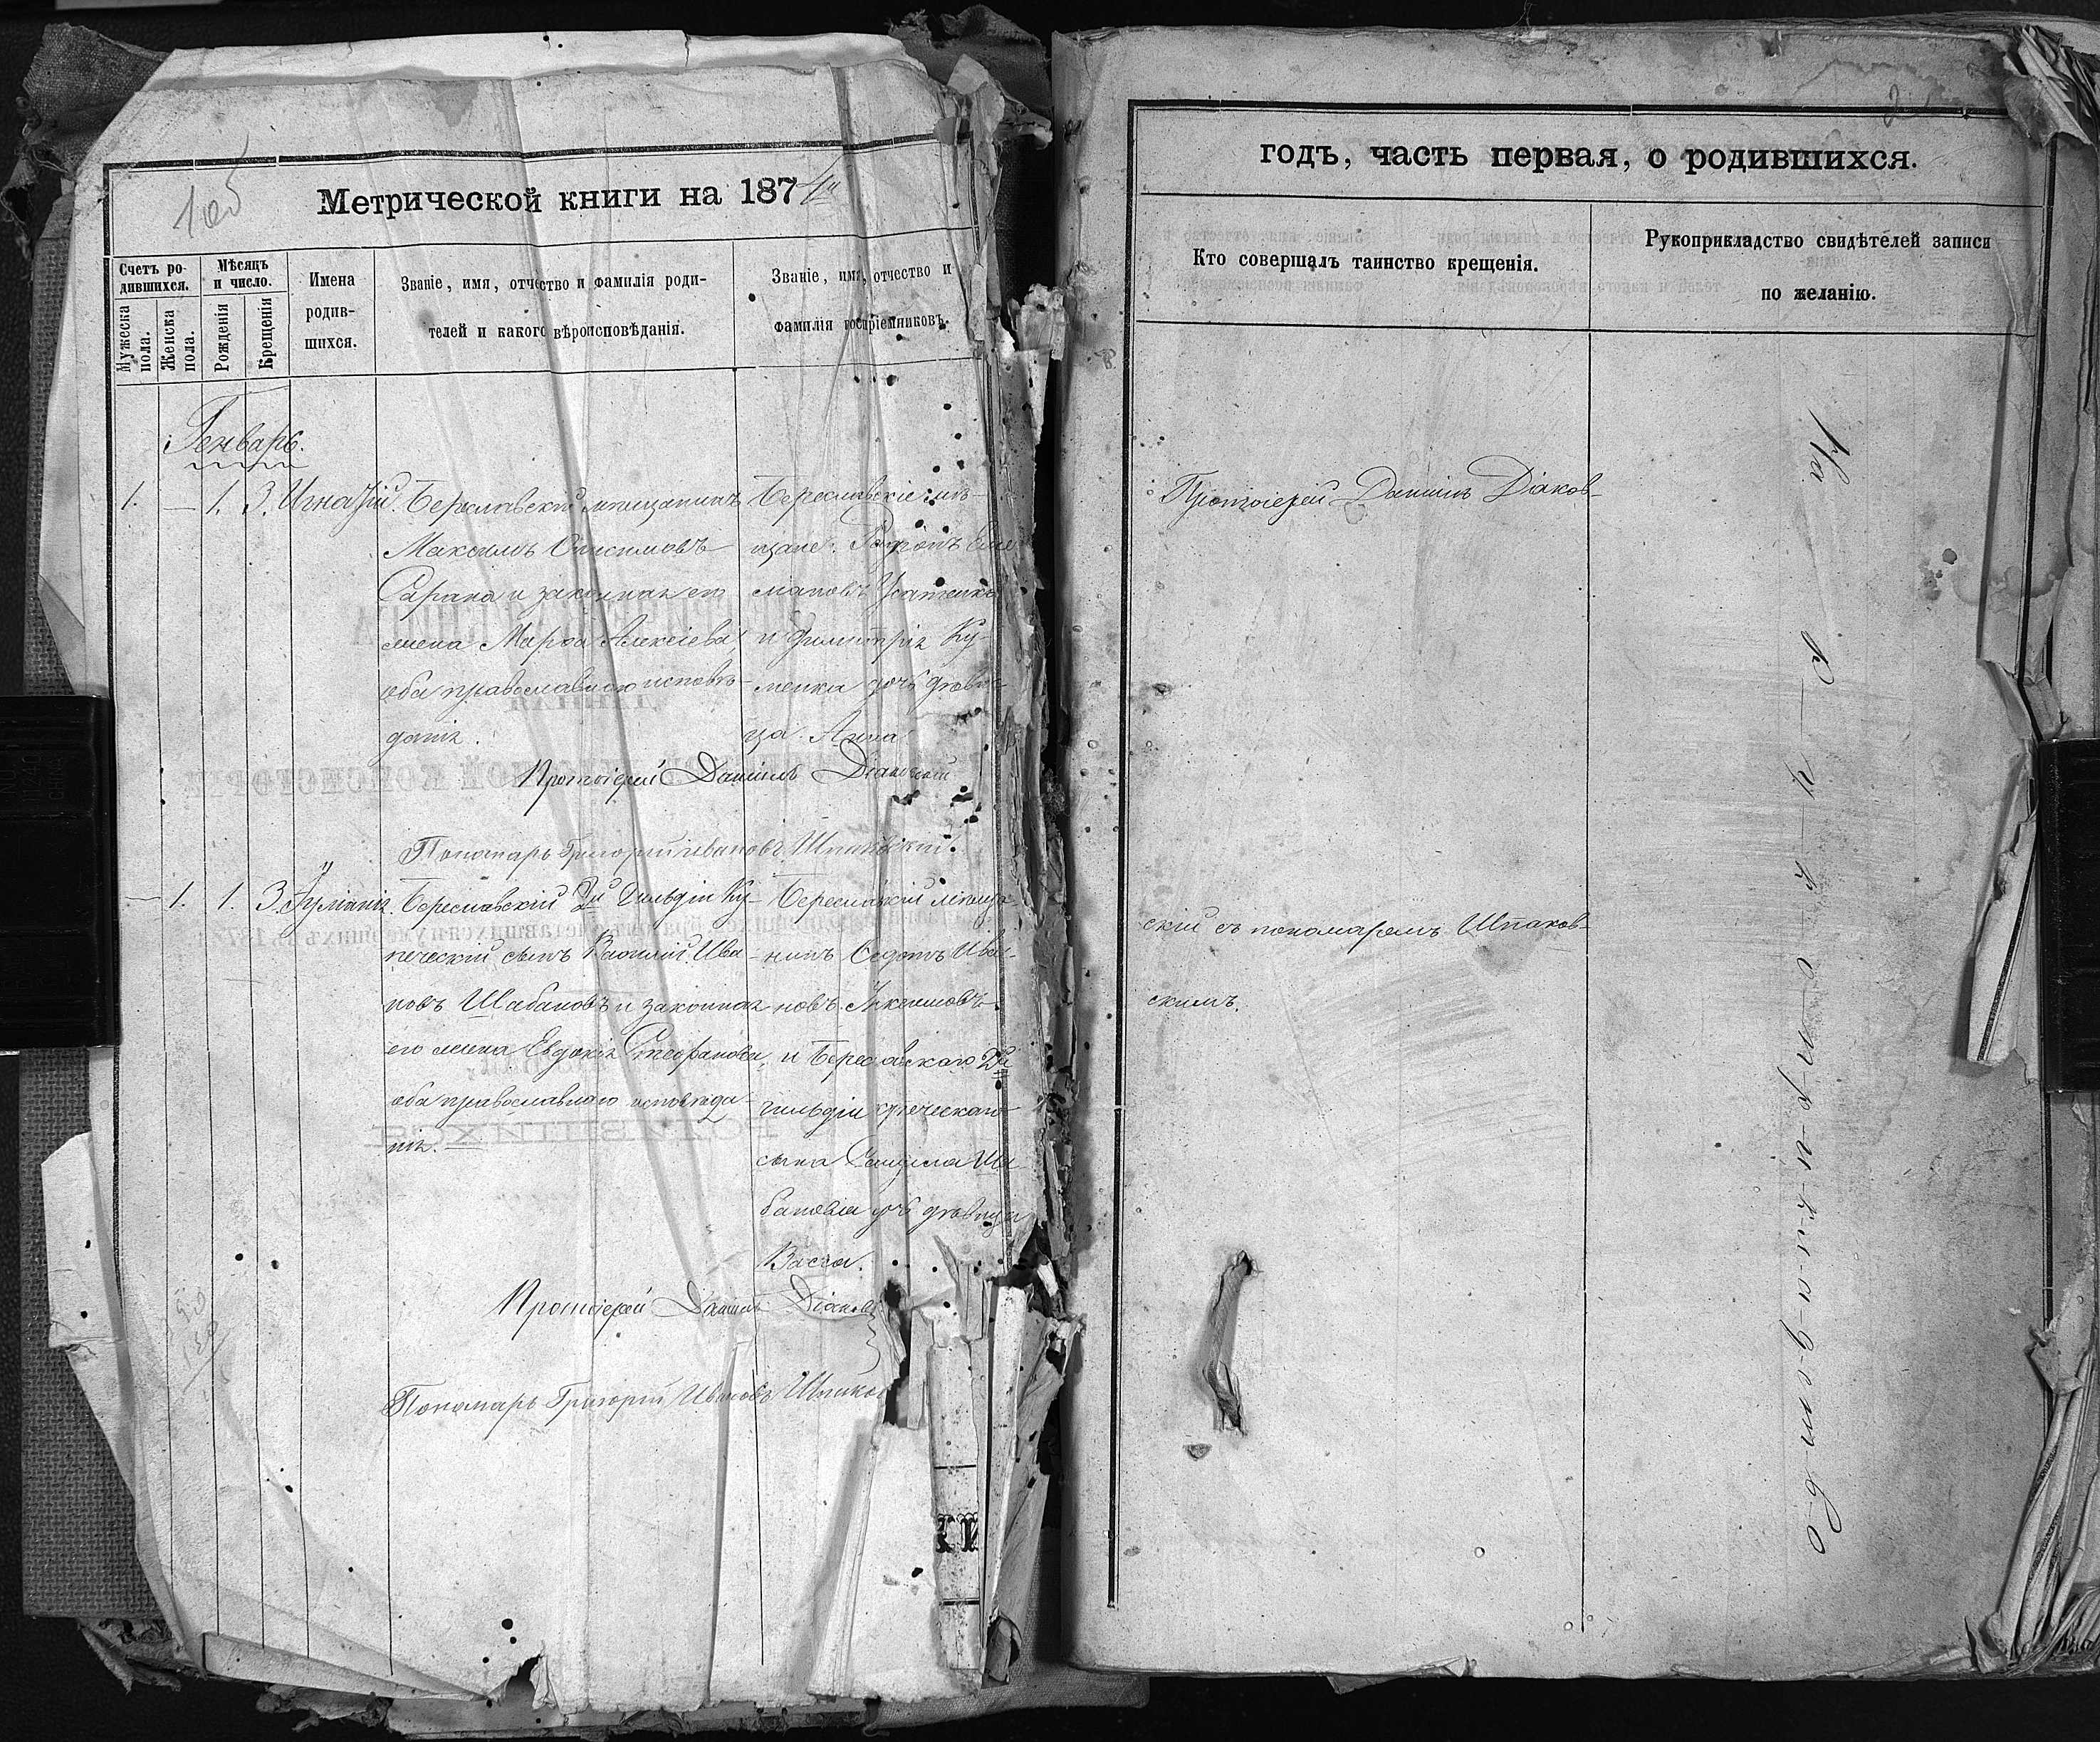 105
Метрической книги на 1874й
Счетъ ро-
дившихся.
Мужеска
пола.
Женска
пола.
Мѣсяцъ
и число.
Рожденія
Крещенія
Имена
родив-
шихся.
Званіе, имя, отчество и фамилія роди-
телей и какого вѣроисповѣданія.
Званіе, имя, отчество и
фамилія воспріемниковъ.
Генварь.
1. — 1. 3. Игнатій.
Береславскій мѣщанинъ
Максимъ Онисимовъ
Сарана и законная его
жена Марфа Алексіева,
оба православнаго исповѣ-
данія.
Береславскіе мѣ-
щане:
и Димитрія Ку-
менка дочь дѣви-
ца Анна
Протоіерей Даніилъ Діаковскій
Пономарь Григорій Ивановъ Шпаковскій.
— 1. 1. 3. Іуліанія.
Береславскій 2й Гильдіи Ку-
печескій сынъ Василій Ива-
новъ Шабановъ и законная
его жена Евдокія Стефанова,
оба православнаго исповѣда-
нія.
Береславскій мѣща-
нинъ Ива-
новъ
и Береславскаго 2й
гильдіи купеческаго
сына Ша-
банова дочь дѣвица
Васса.
Протоіерей Даніилъ Діаков
Пономарь Григорій Ивановъ Шпаков
КИ
2
годъ, часть первая, о родившихся.
Кто совершалъ таинство крещенія.
Рукоприкладство свидѣтелей записи
по желанію.
Протоіерей Даніилъ Діаков-
скій съ пономаремъ Шпаков-
скимъ.